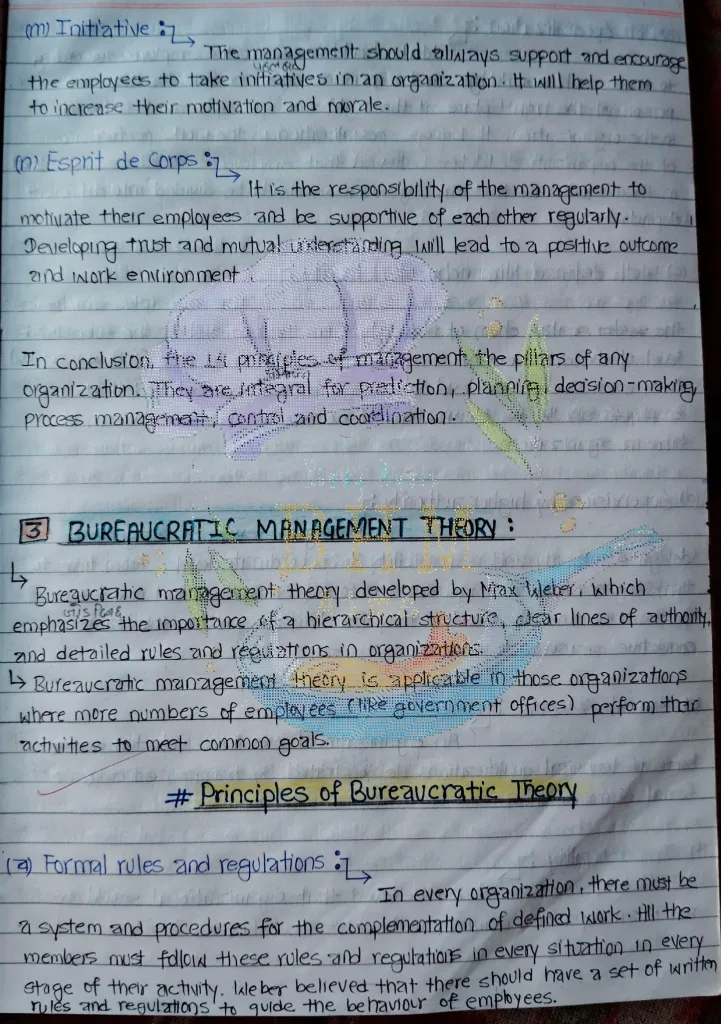 (m) Initiative :↳
The management should always support and encourage
the employees to take initiatives in an organization. It will help them
to increase their motivation and morale.
(n) Esprit de corps :↳
It is the responsibility of the management to
motivate their employees and be supportive of each other regularly.
Developing trust and mutual understanding will lead to a positive outcome
and work environment.
In conclusion, the 14 principles of management the pillars of any
organization. They are integral for prediction, planning, decision-making,
process management, control and coordination.
BHM
3 BUREAUCRATIC MANAGEMENT THEORY :
↳
Bureaucratic management theory developed by Max Weber, which
emphasizes the importance of a hierarchical structure, clear lines of authority,
and detailed rules and regulations in organizations.
↳ Bureaucratic management theory is applicable in those organizations
where more numbers of employees (like government offices) perform their
activities to meet common goals.
# Principles of Bureaucratic Theory
(a) Formal rules and regulations :↳
In every organization, there must be
a system and procedures for the complementation of defined work. All the
members must follow these rules and regulations in every situation in every
stage of their activity. Weber believed that there should have a set of written
rules and regulations to guide the behaviour of employees.